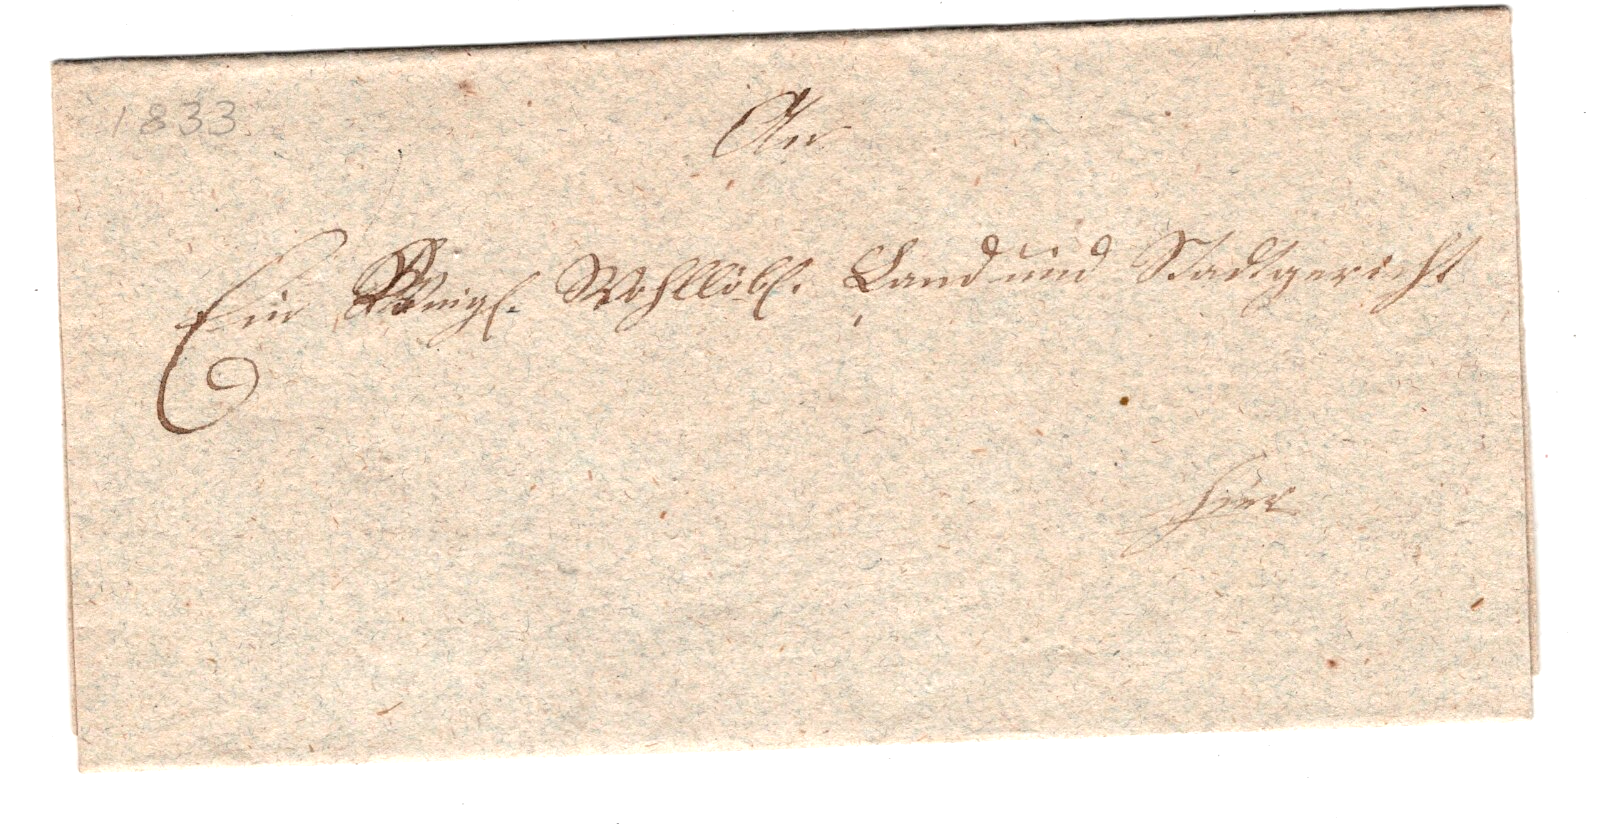 1833
An
Ein Königl. Wohllöbl. Land und Stadtgericht
hier